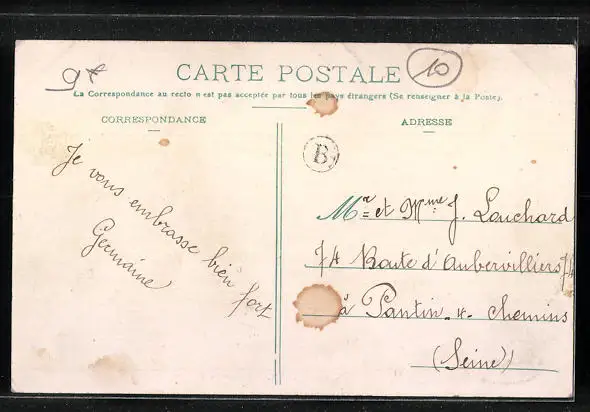 CARTE POSTALE
10
La Correspondance au recto n est pas acceptée par tous les pays étrangers (Se renseigner à la Poste).
CORRESPONDANCE
ADRESSE
Je vous embrasse bien fort
Germaine
B
Mr et Mme J. Louchard
74 Route d'Aubervilliers
à Pantin 4 chemins
(Seine)